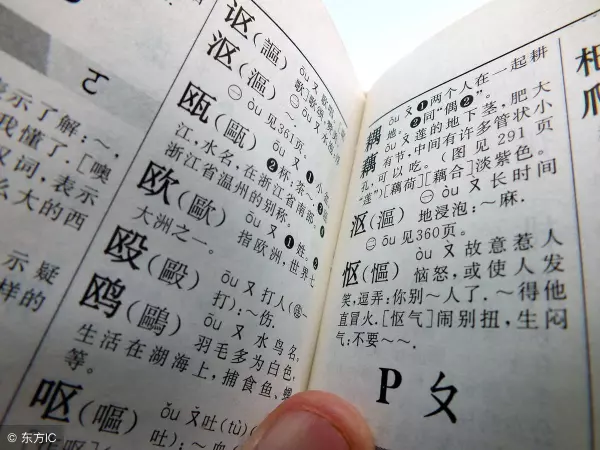 ㄛ
表示了解：～，
我懂了.［噢
叹词，表示
么大的西
示疑
样的
讴（謳） ōu ㄡ
沤（漚） ㊀ ōu
～。
㊁ òu 见361页
瓯（甌） ōu ㄡ ❶
❷杯：茶～.
江，水名，在浙江省南部。
浙江省温州的别称。
欧（歐） ōu ㄡ ❶姓。❷
指欧洲，世界七
大洲之一。
殴（毆） ōu ㄡ 打人（㊣一
打）：～伤.
鸥（鷗） ōu ㄡ 水鸟名，
羽毛多为白色，
生活在湖海上，捕食鱼、螺
等。
呕（嘔） ǒu ㄡ 吐（tù）（
吐）：～
耦 ǒu ㄡ ❶两个人在一起耕
地。❷同“偶❷”。
藕 ǒu ㄡ 莲的地下茎，肥大
有节，中间有许多管状小
孔，可以吃。（图见 291 页
“莲”）［藕荷］［藕合］淡紫色。
沤（漚） ㊀ òu ㄡ 长时间
地浸泡：～麻.
㊁ ōu 见360页.
怄（慪） òu ㄡ 故意惹人
恼怒，或使人发
笑，逗弄：你别～人了.～得他
直冒火.［怄气］闹别扭，生闷
气：不要～～.
P ㄆ
© 东方IC